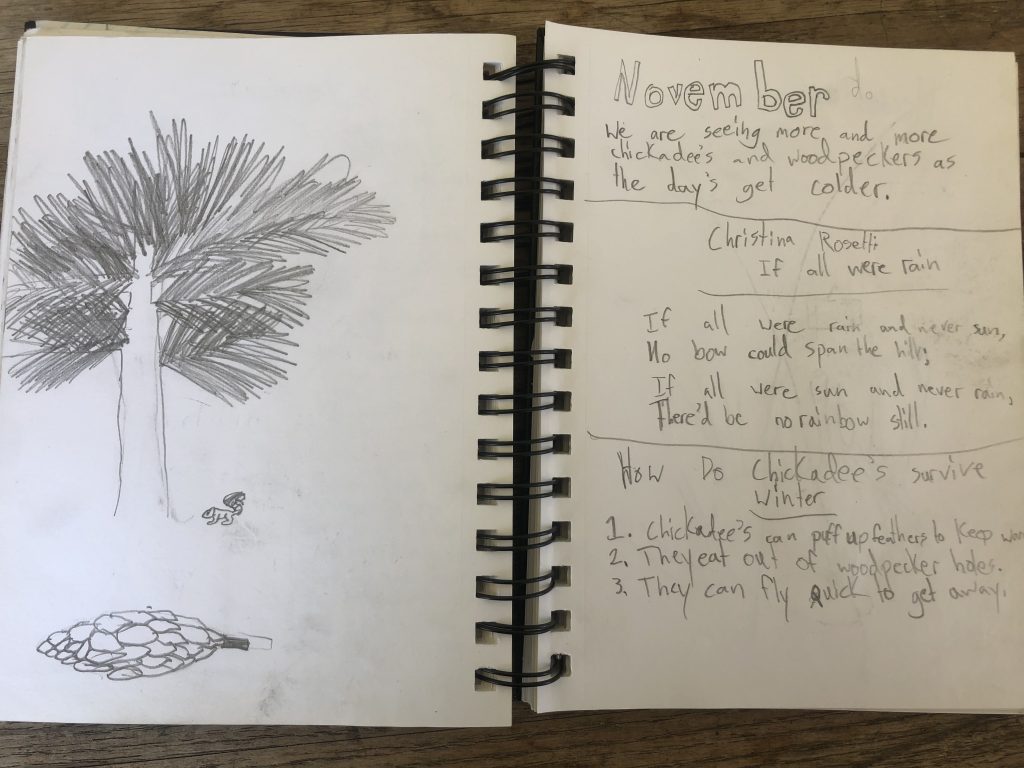 November
We are seeing more and more
chickadee's and woodpeckers as
the day's get colder.
Christina Rosetti
If all were rain
If all were rain and never sun,
No bow could span the hill;
If all were sun and never rain,
There'd be no rainbow still.
How Do Chickadee's survive
winter
1. Chickadee's can puff up feathers to keep
2. They eat out of woodpecker holes.
3. They can fly Quick to get away.